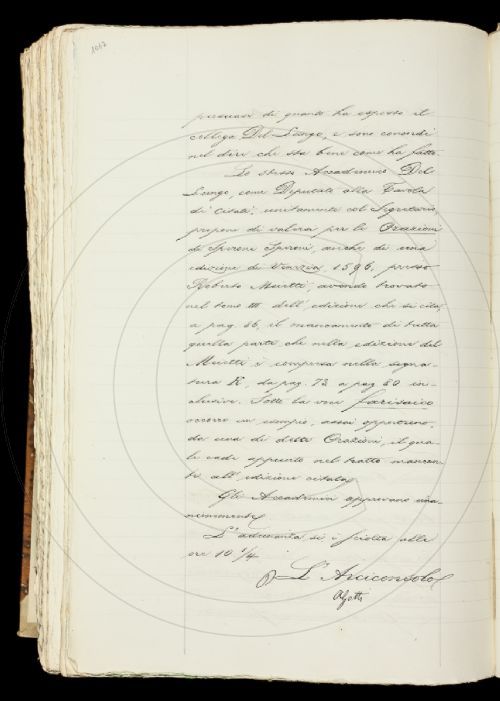 1017
persuasi di quanto ha esposto il
collega Del-Lungo, e sono concordi
nel dire che sta bene come ha fatto.
Lo stesso Accademico Del-
Lungo, come Deputato alla Tavola
di Citati, unitamente col Segretario,
propone di valersi per le Orazioni
di Sperone Speroni, anche di una
edizione di Venezia 1596, presso
Roberto Meietti, avendo trovato
nel tomo III. dell'edizione che si cita,
a pag. 66, il mancamento di tutta
quella parte che nella edizione del
Meietti è compresa nella segna-
tura K, da pag. 73 a pag 80 in-
clusive. Sotto la voce farisaico
occorre un esempio, assai opportuno,
da una di dette Orazioni, il qua-
le cade appunto nel tratto mancan-
te all'edizione citata.
Gli Accademici approvano una-
nimemente.
L'adunanza si è sciolta alle
ore 10 1/4
L'Arciconsolo